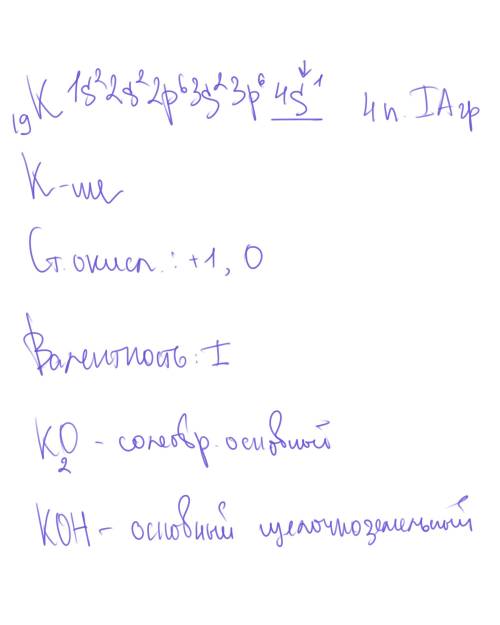 ₁₉K 1s²2s²2p⁶3s²3p⁶4s¹ 4п. IA гр
K - ще
Ст. окисл.: +1, 0
Валентность: I
KO₂ - солеобр. основный
KOH - основный щелочноземельный